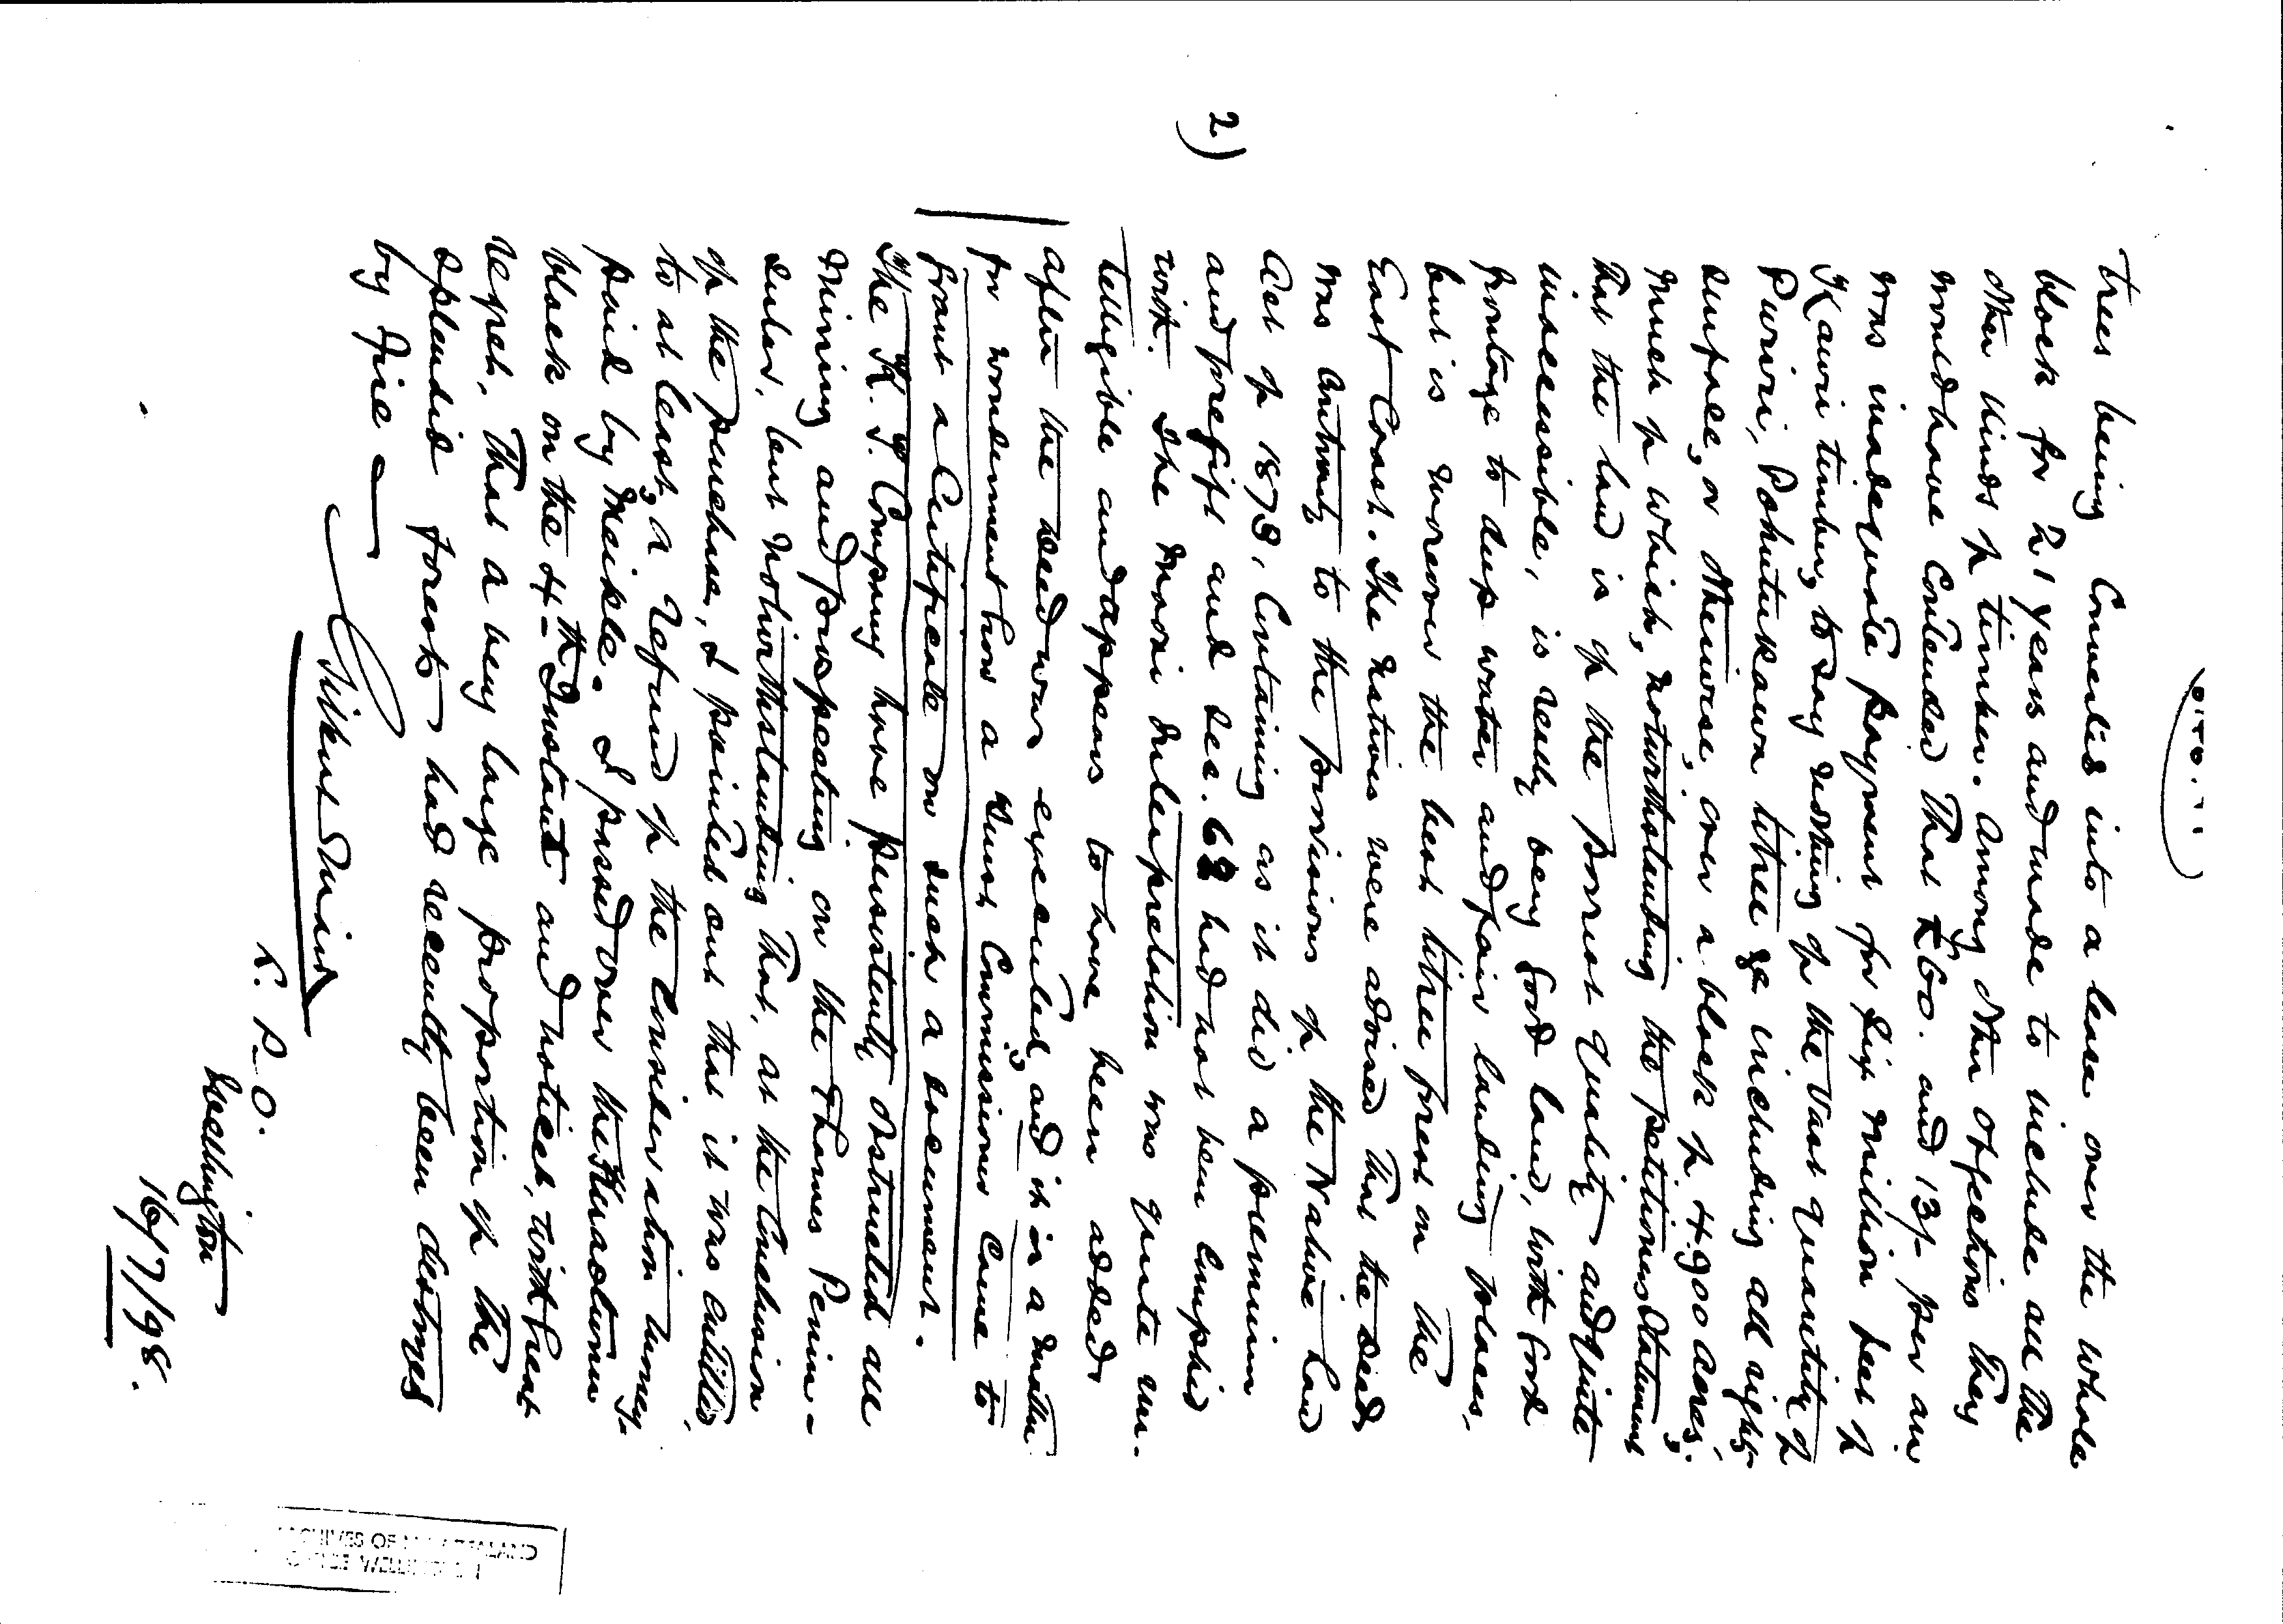 trees being Converted into a lease over the whole
block for 21 years and made to include all the
other kinds of timber. Among other objections they
would have Contended that £60. and 13/- per an
was inadequate payment for Six million feet of
Kauri timber, to say nothing of the vast quantity of
Puriri, Pohutukawa &c including all rights
surface, or otherwise, over a block of 4.900 acres;
much of which, notwithstanding the petitioners Statement
that the land is of the poorest quality and quite
inaccessible, is really very good land, with good
frontage to deep water and fair landing places,
but is moreover the best forest on the
East Coast. The natives were advised that the deed
was contrary to the provisions of the Native Land
Act of 1873, Containing as it did a premium
and forefift and Sec. 62 had not been Complied
with. The Maori Interpretation was quite un-
telligible and appears to have been added
after the deed was executed, and it is a matter
for wonderment how a Trust Commissioner Came to
grant a Certificate on such a document.
The K. T. Company have persistently obstructed all
mining and prospecting on the Thames Penin-
sular, but notwithstanding that, at the Conclusion
of the purchase, I pointed out that it was entitled,
to at least, a refund of the Consideration money
paid by Meikle. I passed over the
block on the 4th Instant and noticed, with great
regret, that a very large proportion of the
splendid forest had recently been destroyed
by fire —
Gilbert Mair
L. P. O.
Wellington
16/7/98.
2)
ARCHIVES OF NEW ZEALAND
OFFICE WELLINGTON